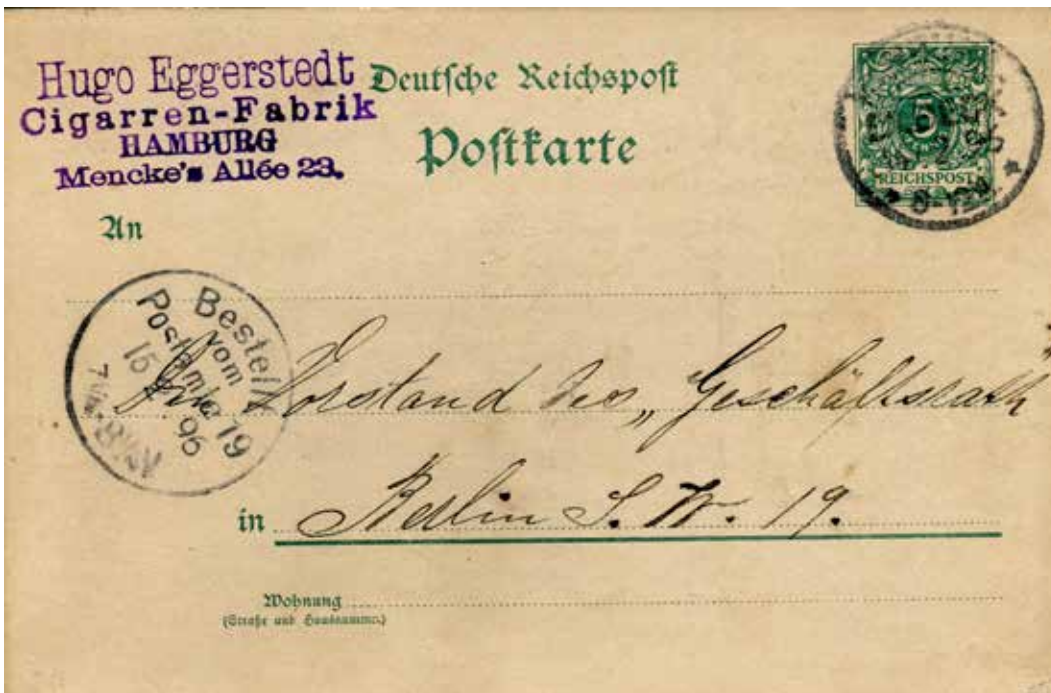 Hugo Eggerstedt
Cigarren-Fabrik
HAMBURG
Mencke's Allée 23.
Deutsche Reichspost
Postkarte
5
REICHSPOST
An
Bestellt
vom
Postamte 19
15
96
Vorstand des „Geschäftsrath"
in Berlin S. W. 19.
Wohnung
(Straße und Hausnummer)